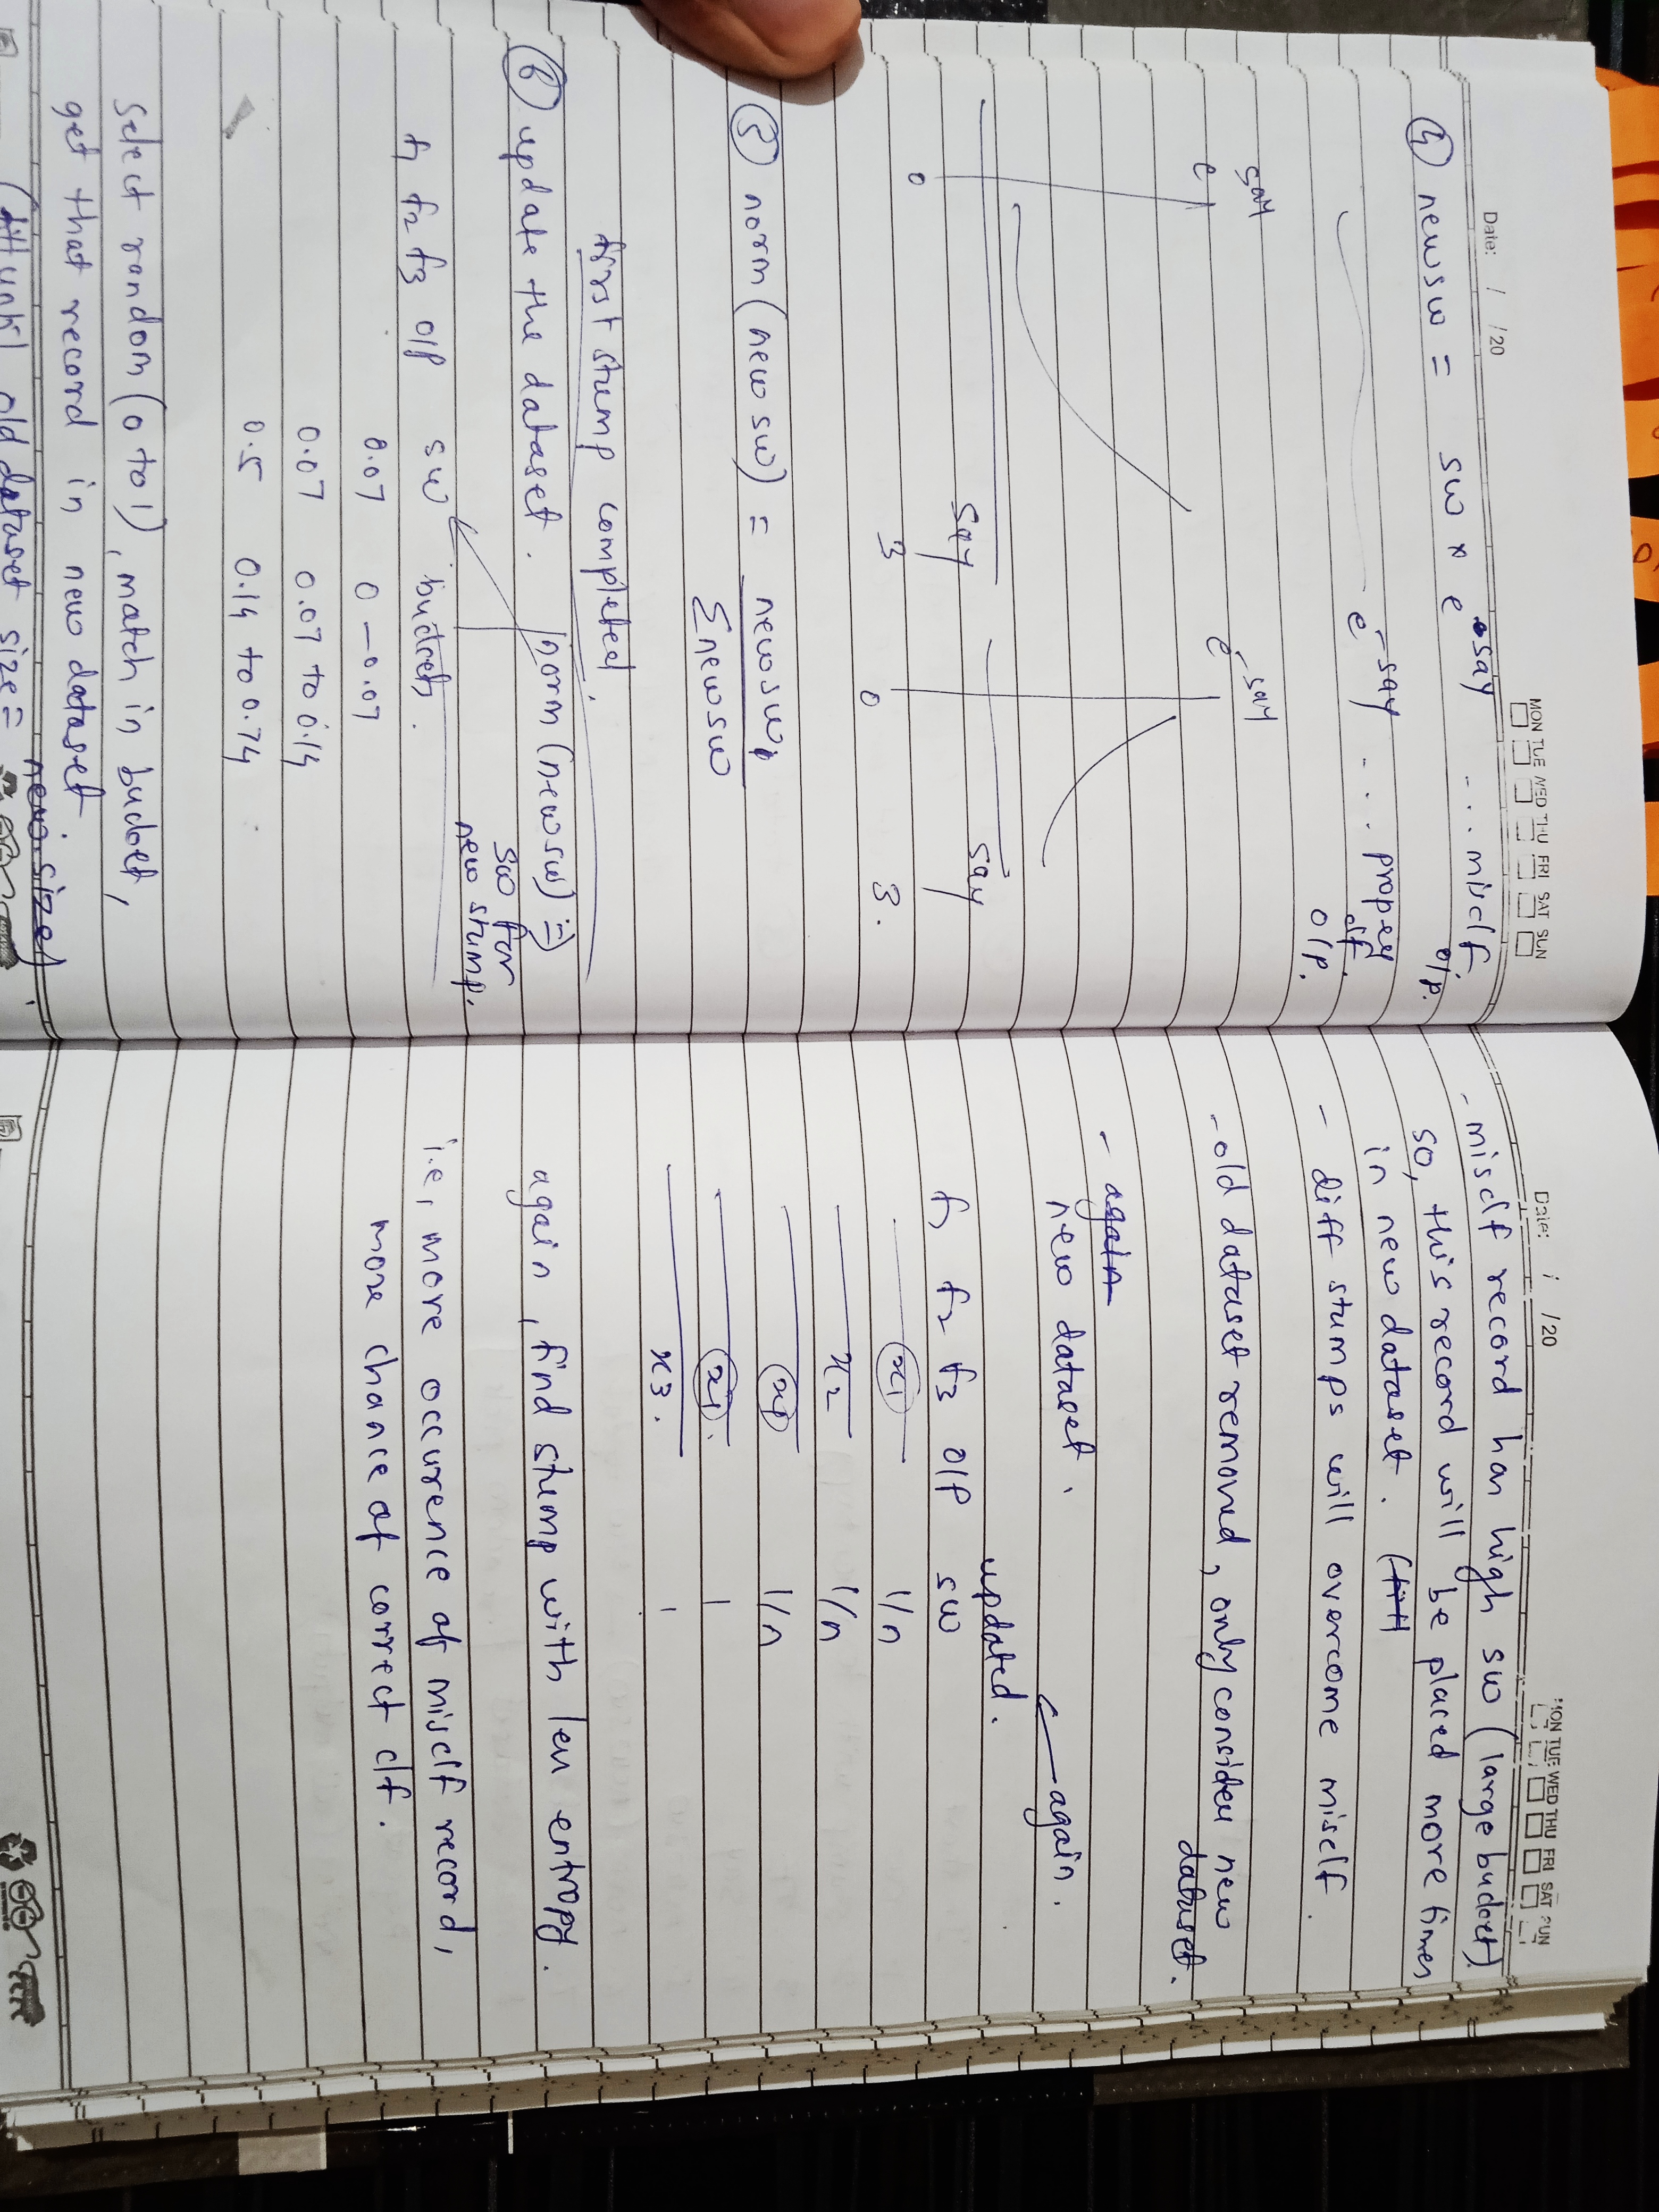 Date: / /20
MON TUE WED THU FRI SAT SUN
④ new sw = sw x e^say ... misclf. o/p.
e^-say ... propery clf. o/p.
e^say
e^-say
0
3
say
0
3.
say
⑤ norm (new sw) = new sw, / Σ new sw
first stump completed.
⑥ update the dataset. norm (new sw) ⇒ sw for new stump.
f1 f2 f3 o/p sw bucket.
0.07 0 – 0.07
0.07 0.07 to 0.14
0.5 0.14 to 0.74
Select random (0 to 1), match in bucket,
get that record in new dataset
(till until old dataset size = new size)
Date: / /20
MON TUE WED THU FRI SAT SUN
- misclf record has high sw (large bucket).
so, this record will be placed more times
in new dataset. (till
- diff stumps will overcome misclf.
- old dataset removed, only consider new dataset.
- again
new dataset. ← again.
updated.
f1 f2 f3 o/p sw
x1 1/n
x2 1/n
x1 1/n
x1. |
x3. |
again, find stump with less entropy.
i.e, more occurence of misclf record,
more chance of correct clf.